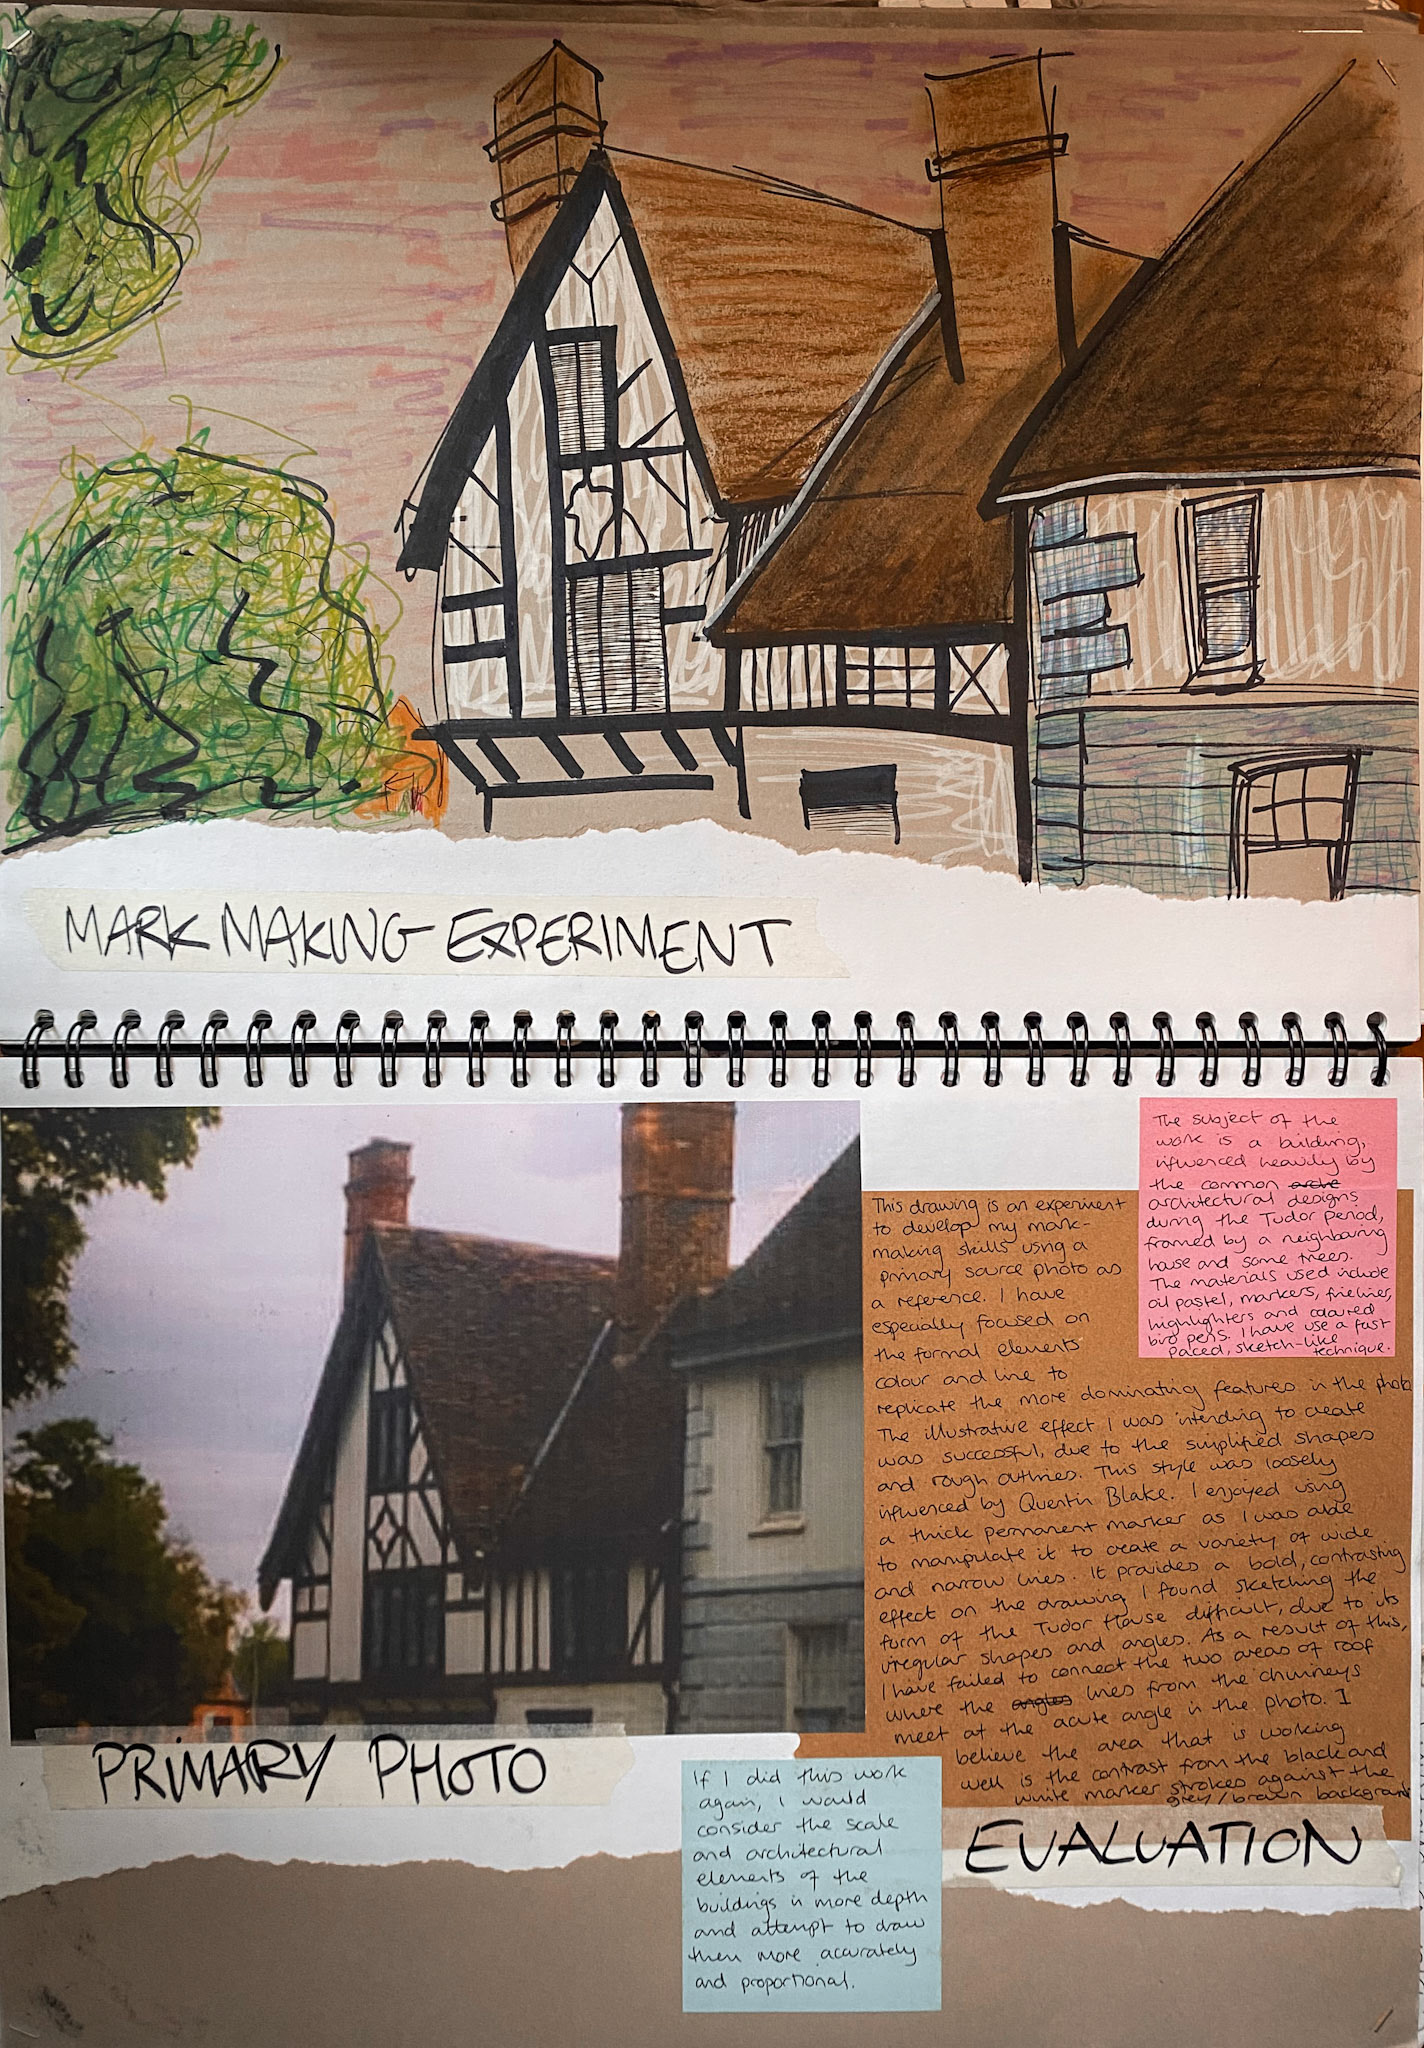 MARK MAKING EXPERIMENT
The subject of the
work is a building,
influenced heavily by
the common arche
architectural designs
during the Tudor Period,
framed by a neighbouring
house and some trees.
The materials used include
oil pastel, markers, fineliner,
highlighters and coloured
biro pens. I have use a fast
paced, sketch-like
technique.
This drawing is an experiment
to develop my mark-
making skills using a
primary source photo as
a reference. I have
especially focused on
the formal elements
colour and line to
replicate the more dominating features in the photo
The illustrative effect I was intending to create
was successful, due to the simplified shapes
and rough outlines. This style was loosely
influenced by Quentin Blake. I enjoyed using
a thick permanent marker as I was able
to manipulate it to create a variety of wide
and narrow lines. It provides a bold, contrasting
effect on the drawing. I found sketching the
form of the Tudor House difficult, due to its
irregular shapes and angles. As a result of this,
I have failed to connect the two areas of roof
where the angles lines from the chimneys
meet at the acute angle in the photo. I
believe the area that is working
well is the contrast from the black and
white marker strokes against the
grey/brown background
PRIMARY PHOTO
If I did this work
again, I would
consider the scale
and architectural
elements of the
buildings in more depth
and attempt to draw
them more accurately
and proportional.
EVALUATION